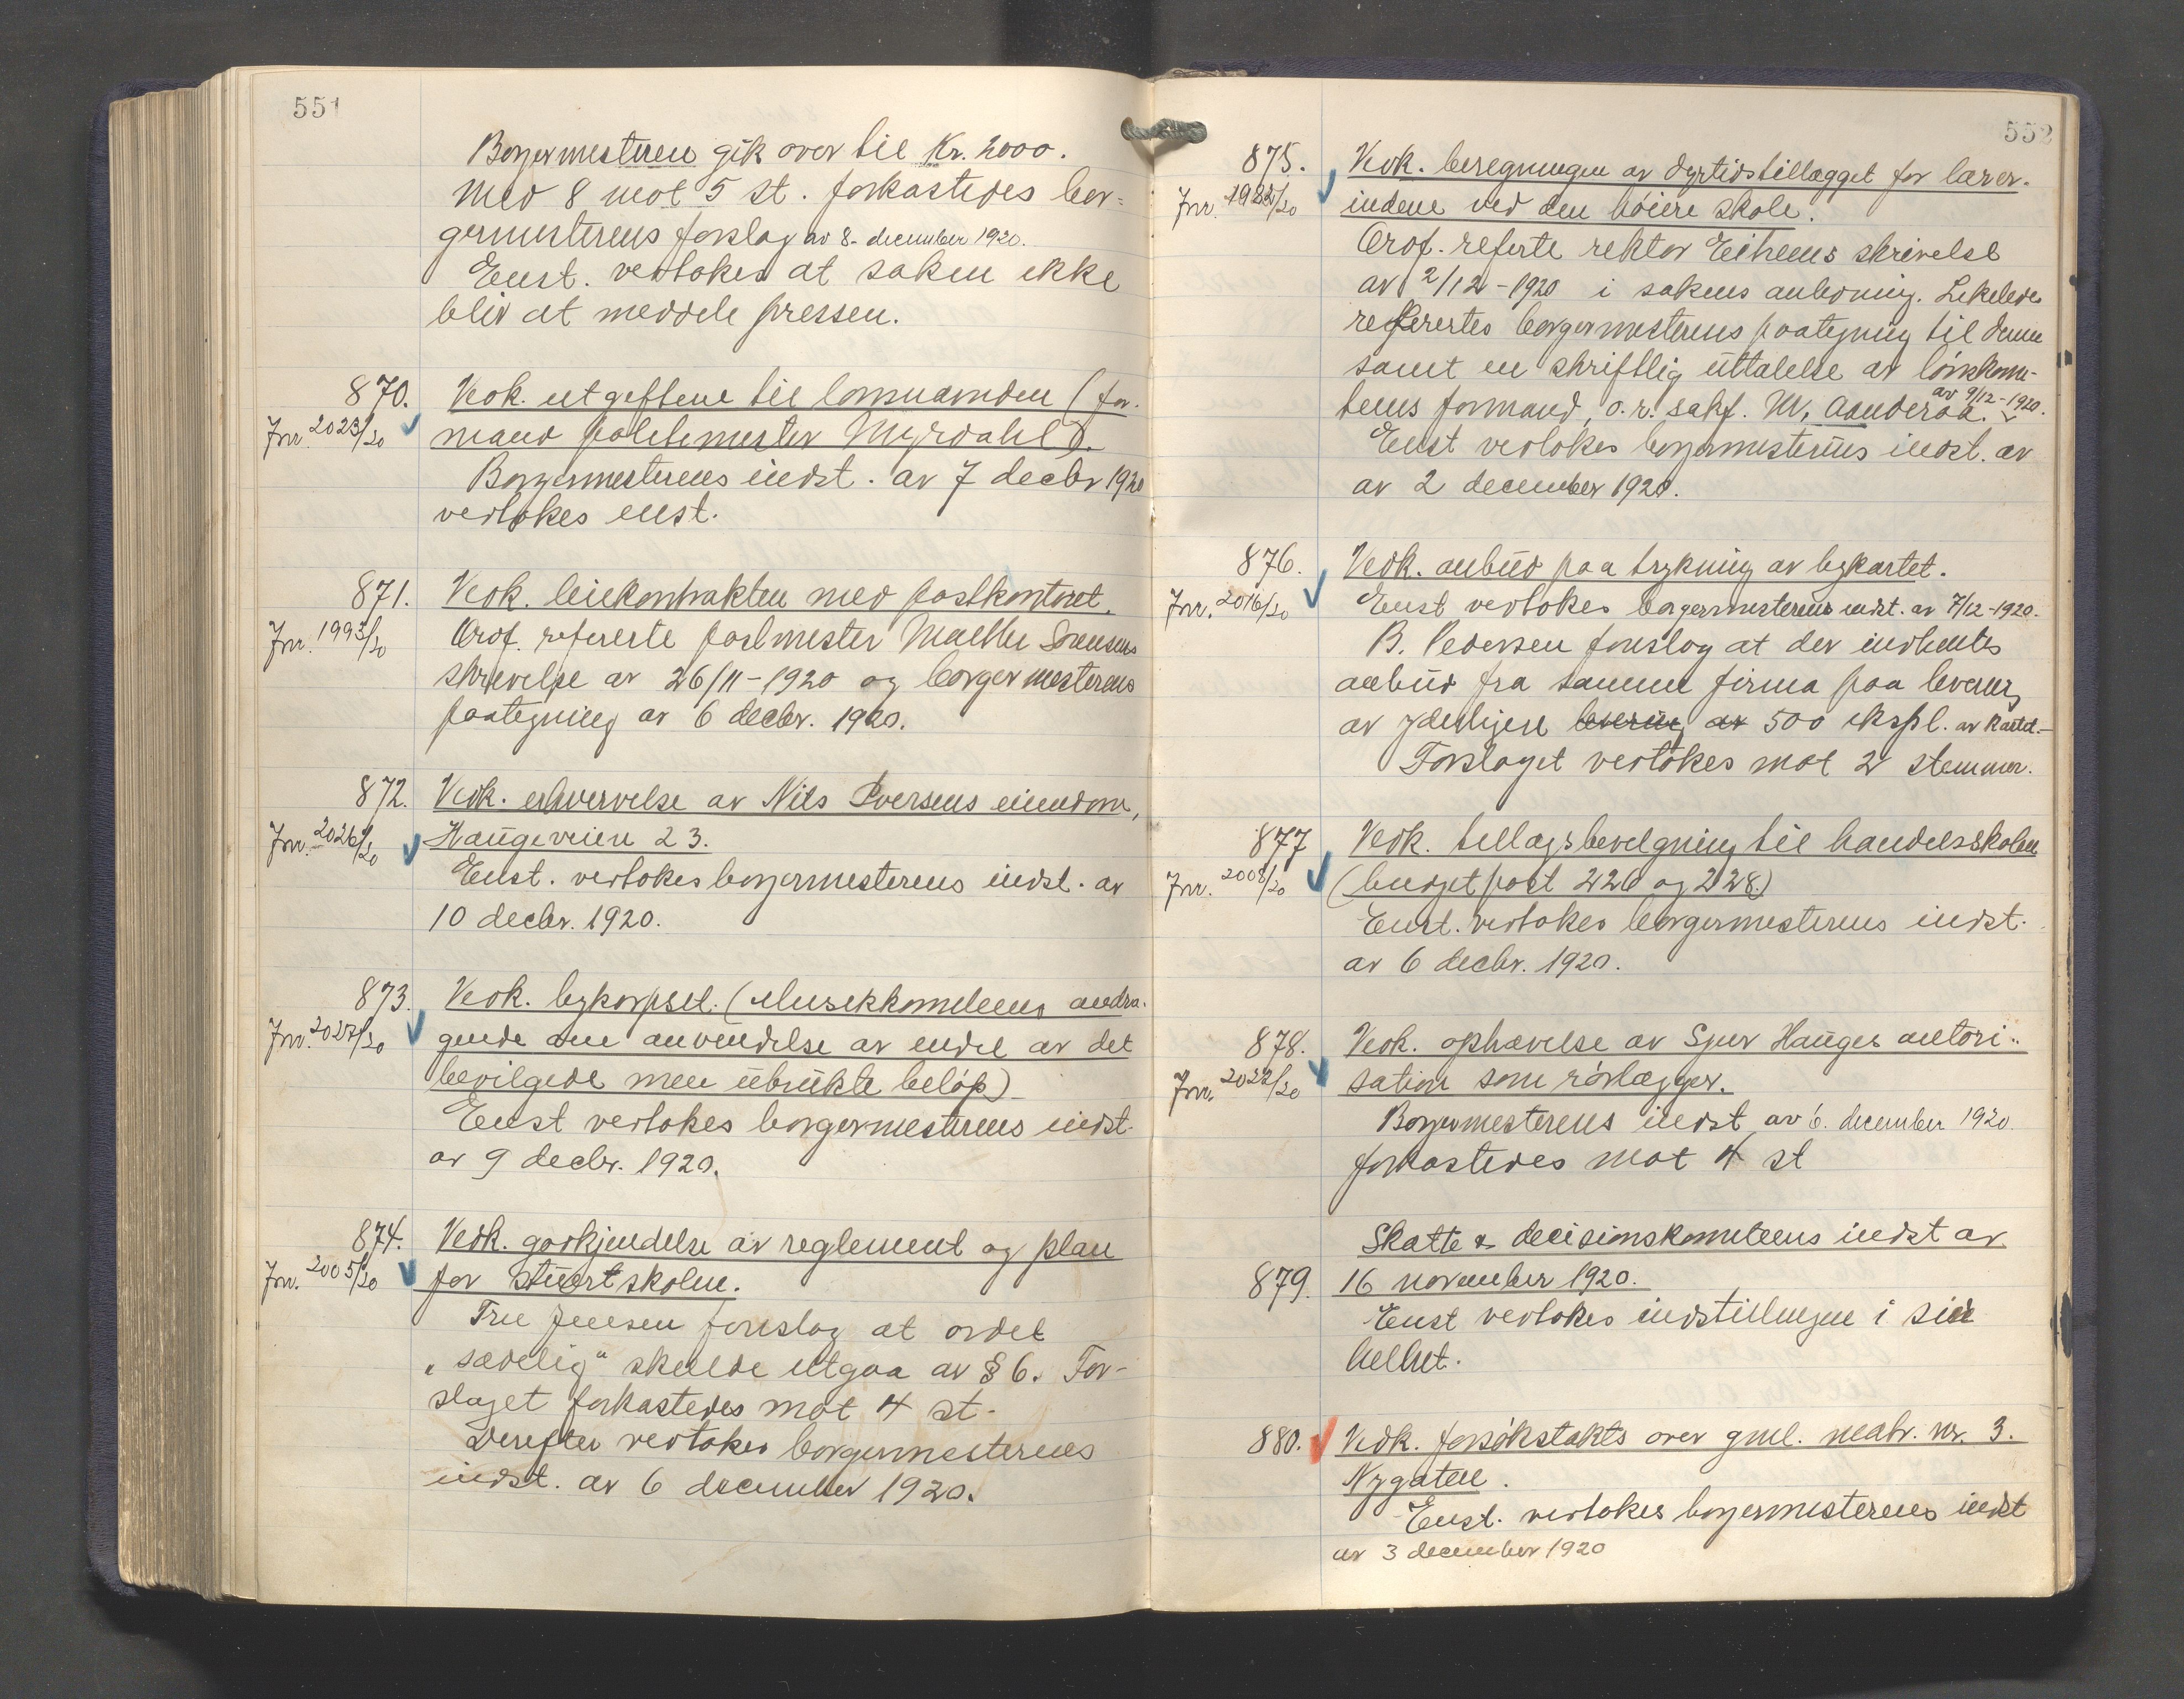 551
Borgermesteren gik over til Kr. 2000.
Med 8 mot 5 st. forkastedes bor-
germesterens forslag av 8. december 1920.
Enst. vedtokes at saken ikke
blir at meddele pressen.
870. Vedk. utgiftene til lønnsnamden (for-
Jnr. 2023/20 mand politimester Myrdahl).
Borgermesterens indst. av 7 decbr 1920
vedtokes enst.
871. Vedk. leiekontrakten med postkontoret.
Jnr. 1993/20 Ordf. refererte postmester Malthe Sørensens
skrivelse av 26/11-1920 og borgermesterens
paategning av 6 decbr. 1920.
872. Vedk. erhvervelse av Nils Iversens eiendom,
Jnr. 2026/20 Haugeveien 23.
Enst. vedtokes borgermesterens indst. av
10 decbr. 1920.
873. Vedk. bykorpset. (Musikkomiteens andra-
Jnr. 2027/20 gende om anvendelse av endel av det
bevilgede men ubrukte beløp)
Enst vedtokes borgermesterens indst.
av 9 decbr. 1920.
874. Vedk. godkjendelse av reglement og plan
Jnr. 2005/20 for stuertskolen.
Fru Jensen foreslog at ordet
"sædelig" skulde utgaa av § 6. For-
slaget forkastedes mot 4 st.
Derefter vedtokes borgermesterens
indst. av 6 december 1920.
552
875. Vedk. beregningen av dyrtidstillægget for lærer-
Jnr. /20 indene ved den høiere skole.
Ordf. referte rektor Eitrems skrivelse
av 2/12-1920 i sakens anledning. Likeledes
referertes borgermesterens paategning til denne
samt en skriftlig uttalelse av lønskomi-
teens formand, o.r. sakf. M. Aanderaa. av 9/12-1920.
Enst vedtokes borgermesterens indst. av
av 2 december 1920.
876. Vedk. anbud paa trykning av bykartet.
Jnr. 2016/20 Enst vedtokes borgermesterens indst. av 7/12-1920.
B. Pedersen foreslog at der indhentes
anbud fra samme firma paa levering
av yderligere levering av 500 ekspl. av kartet.
Forslaget vedtokes mot 2 stemmer.
877 Vedk. tillægsbevilgning til handelsskolen
Jnr. 2008/20 (budgetpost 226 og 228.)
Enst. vedtokes borgermesterens indst.
av 6 decbr. 1920.
878. Vedk. ophævelse av Sjur Hauges autori-
Jnr. 2022/20 sation som rørlægger.
Borgermesterens indst av 6. december 1920
forkastedes mot 4 st
Skatte & decisionskomiteens indst av
879. 16 november 1920.
Enst vedtokes indstillingen i sin
helhet.
880. Vedk. forsøkstakts over gml. matr. nr. 3.
Nygaten.
Enst. vedtokes borgermesterens indst
av 3 december 1920